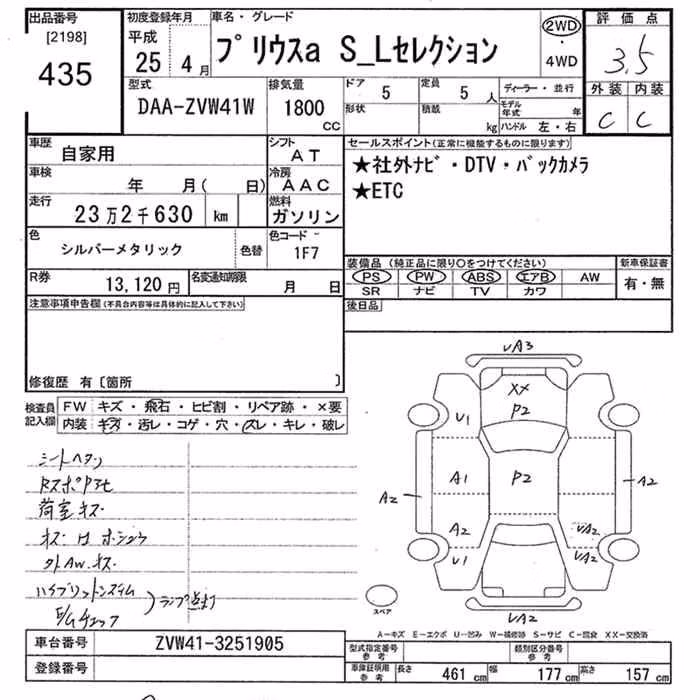 出品番号
[2198]
435
初度登録年月
平成
25 4月
車名・グレード
プリウスa S_Lセレクション
2WD
・
4WD
評価点
3.5
外装 内装
C C
型式
DAA-ZVW41W
排気量
1800
CC
ドア 5
形状
定員 5人
積載 kg
ディーラー・並行
モデル年式 年
ハンドル 左・右
車歴
自家用
シフト
AT
車検
年 月( 日)
冷房
AAC
走行
23万2千630 km
燃料
ガソリン
色
シルバーメタリック
色替
色コード
1F7
R券
13,120円
名変通知期限
月 日
セールスポイント(正常に機能するものに限ります)
★社外ナビ・DTV・バックカメラ
★ETC
装備品 (純正品に限り○をつけてください)
PS PW ABS エアB AW
SR ナビ TV カワ
新車保証書
有・無
後日品
注意事項申告欄(不具合内容等は具体的に記入して下さい)
修復歴 有〔箇所 〕
検査員
記入欄
FW キズ・飛石・ヒビ割・リペア跡・×要
内装 キズ・汚レ・コゲ・穴・スレ・キレ・破レ
シートヘタリ
荷室キズ
外AW.キズ
ハイブリットシステム
E/Gチェック
ランプ点灯
UA3
XX
P2
U1
A1
P2
A2
A2
A2
UA2
U1
UA2
UA2
スペア
A-キズ E-エクボ U-凹み W-補修跡 S-サビ C-腐食 XX-交換済
車台番号
ZVW41-3251905
登録番号
型式指定番号
参考
類別区分番号
参考
車庫証明用
参考
長さ 461 cm 幅 177 cm 高さ 157 cm